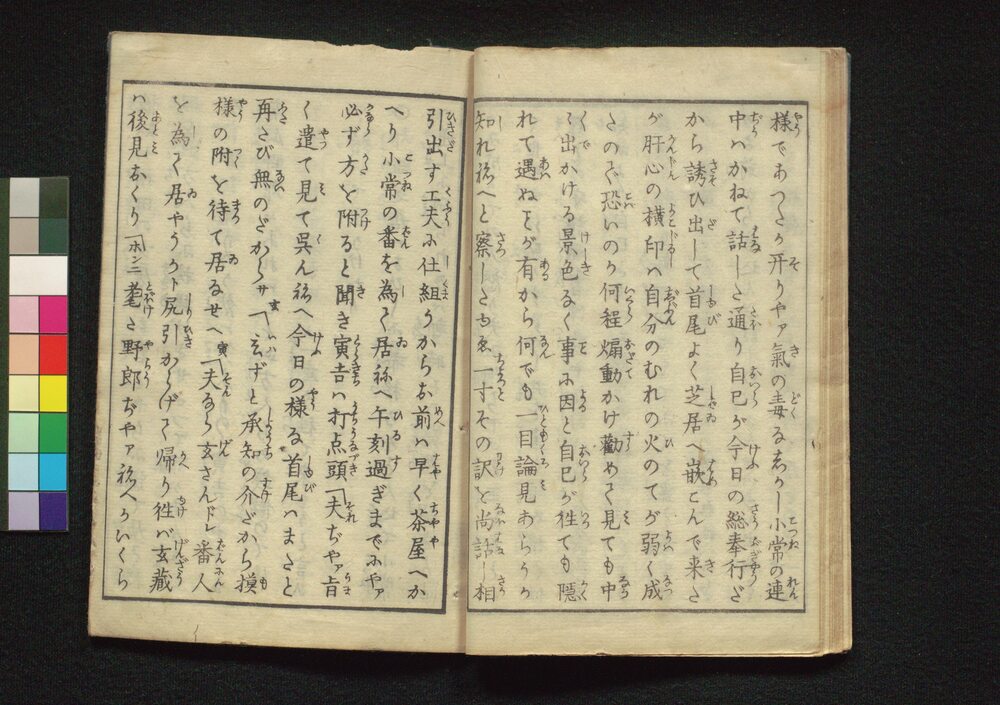 様であつたか开りやア氣の毒なあかし小常の連
中ハかねて話した通り自己が今日の総奉行だ
から誘ひ出して首尾よく芝居へ嵌こんで来た
が肝心の横印ハ自分のむれの火のてが弱く成
たので恐いのか何程煽動かけ勧めて見ても中
〻出かける景色なく事に因と自己が徃ても隠
れて遇ねヱが有から何でも一目論見あらうか
知れ祢へと察したもゑ一寸その訳を尚話し相
引出す工夫に仕組うからお前ハ早く茶屋へか
へり小常の番を為て居祢へ午刻過ぎまでにやア
必ず方を附ると聞き寅吉ハ打点頭「夫ぢやア旨
く遣て見て呉ん祢へ今日の様な首尾ハまたと
再たび無のだからサ玄「云ずと承知の介だから模
様の附を待て居なせへ寅「夫なら玄さんドレ番人
を為て居やうかト尻引からげて帰り徃バ玄蔵
ハ後見おくり「ホンニ耄た野郎ぢやア祢へかいくら